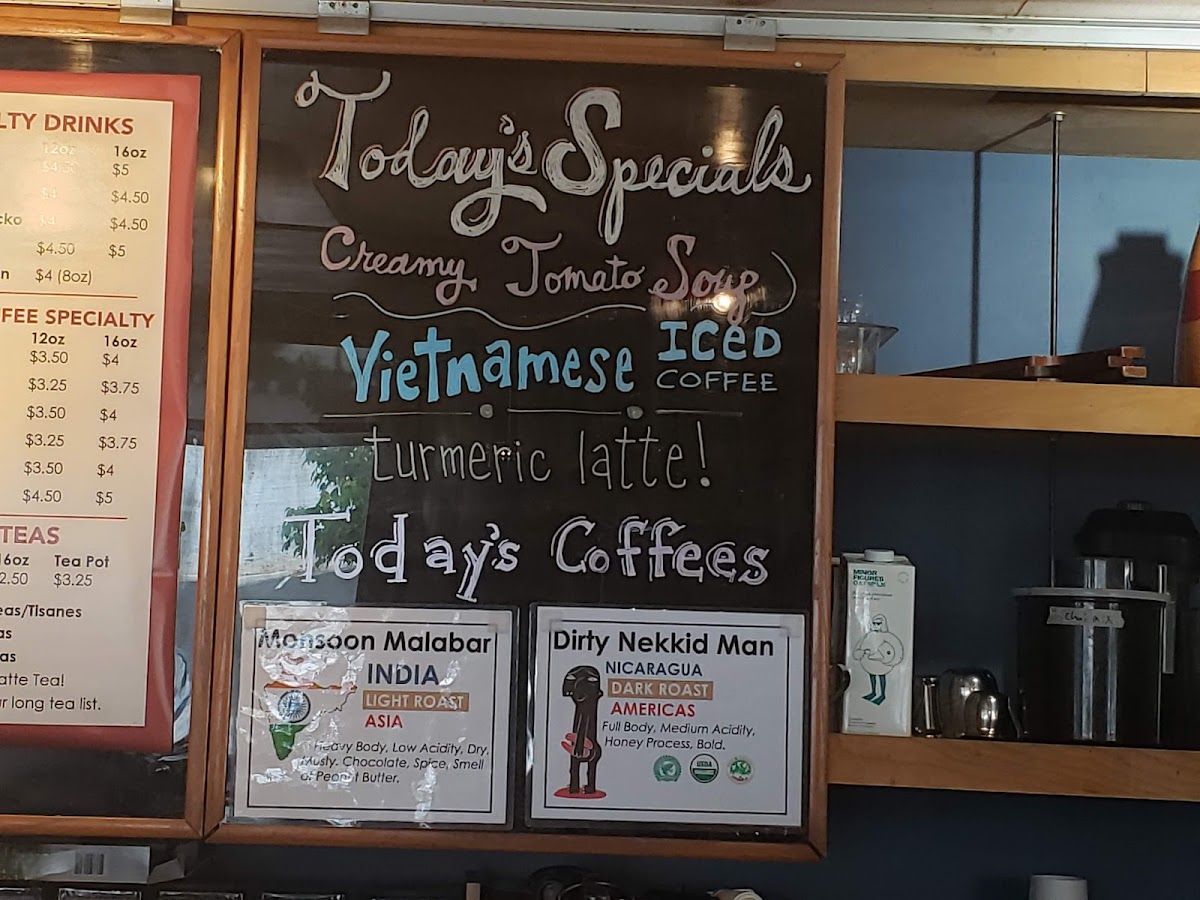 LTY DRINKS
12oz 16oz
$4.50 $5
$4 $4.50
cko $4 $4.50
$4.50 $5
n $4 (8oz)
FFEE SPECIALTY
12oz 16oz
$3.50 $4
$3.25 $3.75
$3.50 $4
$3.25 $3.75
$3.50 $4
$4.50 $5
TEAS
16oz Tea Pot
2.50 $3.25
eas/Tisanes
as
as
atte Tea!
ur long tea list.
Today's Specials
Creamy Tomato Soup
Vietnamese ICED
COFFEE
turmeric latte!
Today's Coffees
Monsoon Malabar
INDIA
LIGHT ROAST
ASIA
Heavy Body, Low Acidity, Dry,
Musty. Chocolate, Spice, Smell
of Peanut Butter.
Dirty Nekkid Man
NICARAGUA
DARK ROAST
AMERICAS
Full Body, Medium Acidity,
Honey Process, Bold.
USDA
MINOR
FIGURES